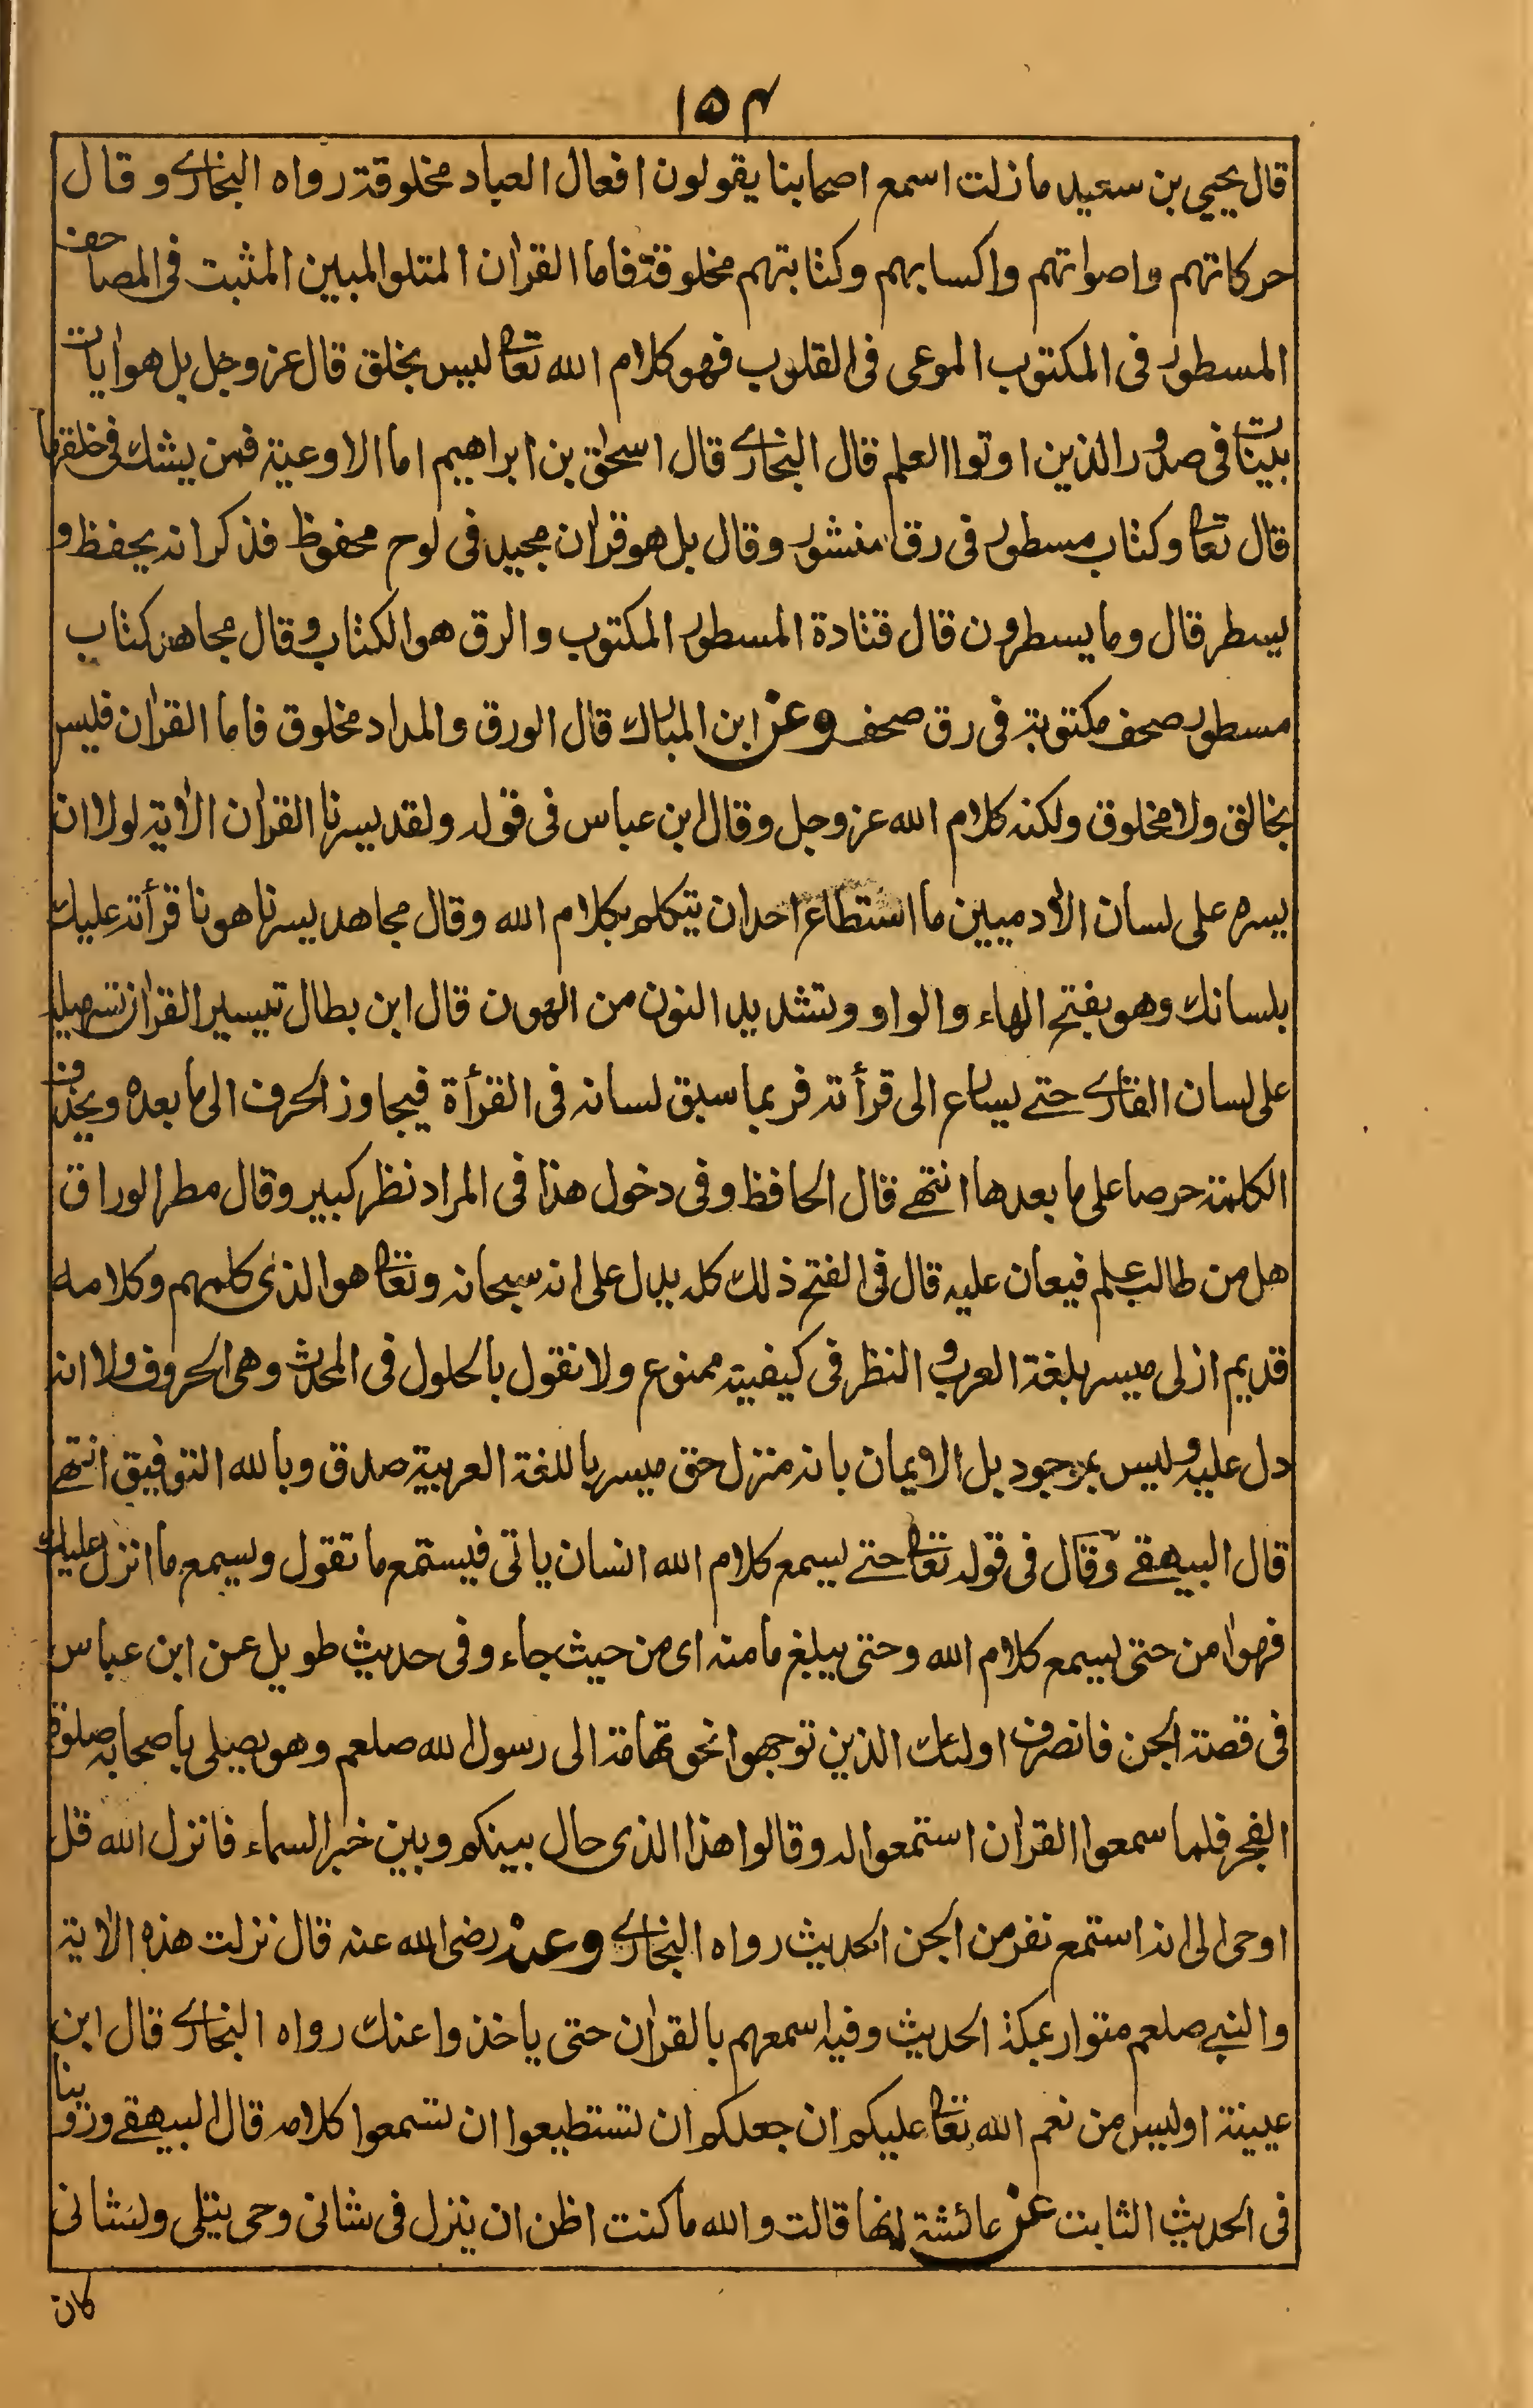 ١٥٤
قال يحيي بن سعيد ما زلت اسمع اصحابنا يقولون افعال العباد مخلوقة رواه البخاري و قال
حركاتهم واصواتهم واكسابهم وكتابتهم مخلوقة فاما القرآن المتلو المبين المثبت فى المصاحف
المسطور فى المكتوب الموعى فى القلوب فهو كلام الله تعالى ليس بخلق قال عز وجل بل هو اٰيات
بينات فى صدور الذين اوتوا العلم قال البخاري قال اسحٰق بن ابراهيم اما الاوعية فمن يشك فى خلقها
قال تعالى وكتاب مسطور فى رق منشور وقال بل هو قراٰن مجيد فى لوح محفوظ فذكر انه يحفظ و
يسطر قال وما يسطرون قال قتادة المسطور المكتوب والرق هو الكتاب وقال مجاهد كتاب
مسطور صحف مكتوبة فى رق صحف وعن ابن المبارك قال الورق والمداد مخلوق فاما القراٰن فليس
بخالق ولا مخلوق ولكنه كلام الله عز وجل وقال ابن عباس فى قوله ولقد يسرنا القراٰن الاٰية لولا ان
يسره على لسان الاٰدميين ما استطاع احد ان يتكلم بكلام الله وقال مجاهد يسرناه هونا قرأته عليك
بلسانك وهو بفتح الهاء والواو وتشديد النون من الهون قال ابن بطال تيسير القراٰن تسهيله
على لسان القاري حتے يسارع الى قرأته فربما سبق لسانه فى القرأة فيجاوز الحرف الى ما بعده ويحذف
الكلمة حرصا على ما بعدها انتهے قال الحافظ وفى دخول هذا فى المراد نظر كبير وقال مطر الوراق
هل من طالب علم فيعان عليه قال فى الفتح ذلك كله يدل على انه سبحانه وتعالى هو الذى كلمهم وكلامه
قديم ازلى ميسر بلغة العرب والنظر فى كيفيته ممنوع ولا نقول بالحلول فى المحدث وهى الحروف ولا انه
دل عليه وليس بموجود بل الايمان بانه منزل حق ميسر باللغة العربية صدق وبالله التوفيق انتهے
قال البيهقے وقال فى قوله تعالى حتے يسمع كلام الله انسان ياتى فيستمع ما تقول ويسمع ما انزل عليك
فهو اٰمن حتى يسمع كلام الله وحتى يبلغ مأمنه اى من حيث جاء وفى حديث طويل عن ابن عباس
فى قصة الجن فانصرف اولئك الذين توجهوا نحو تهامة الى رسول الله صلعم وهو يصلى باصحابه صلوة
الفجر فلما سمعوا القراٰن استمعوا له وقالوا هذا الذى حال بينكم وبين خبر السماء فانزل الله قل
اوحى الى انه استمع نفر من الجن الحديث رواه البخاري وعنه رضى الله عنه قال نزلت هذه الاٰية
والنبے صلعم متوار بمكة الحديث وفيه اسمعهم بالقراٰن حتى ياخذوا عنك رواه البخاري قال ابن
عيينة اوليس من نعم الله تعالى عليكم ان جعلكم ان تستطيعوا ان تسمعوا كلامه قال البيهقے وروينا
فى الحديث الثابت عن عائشة انها قالت والله ما كنت اظن ان ينزل فى شانى وحى يتلى ولشانى
كان